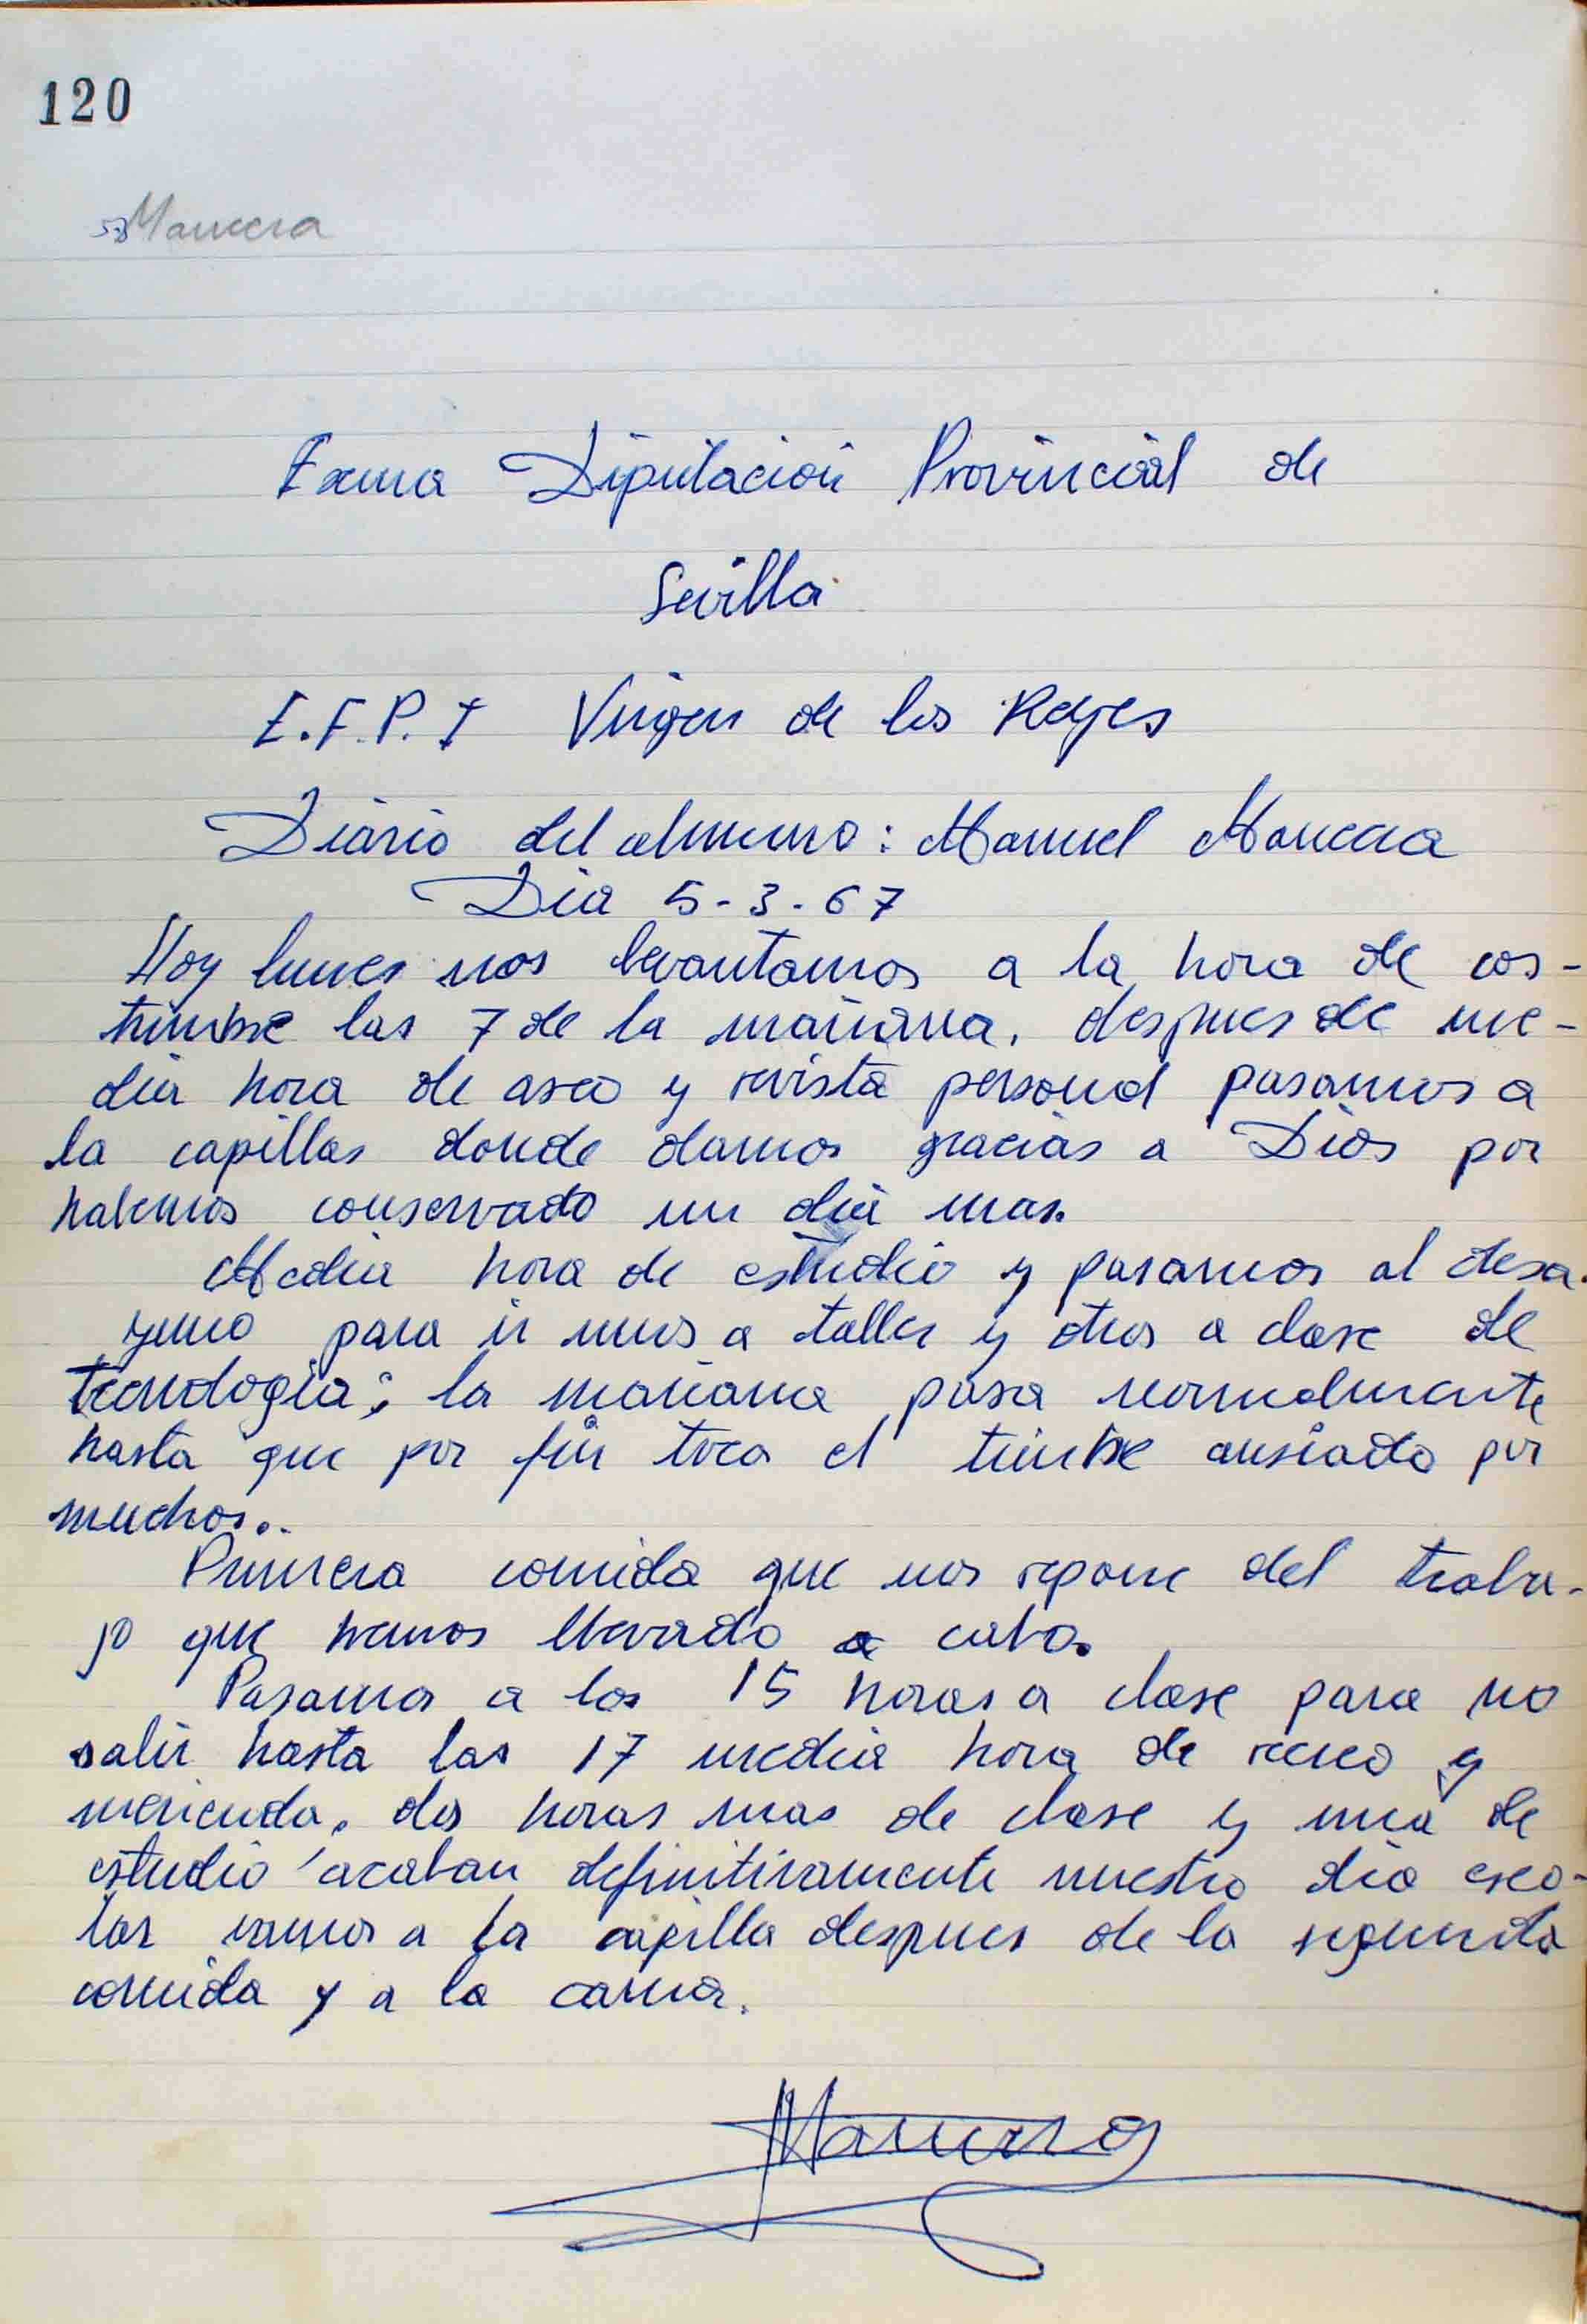 120
Mancera
Exma Diputación Provincial de
Sevilla
E.F.P.I Virgen de los Reyes
Diario del alumno: Manuel Mancera
Dia 5-3-67
Hoy lunes nos levantamos a la hora de cos-
tumbre las 7 de la mañana. despues de me-
dia hora de aseo y revista personal pasamos a
la capillas donde damos gracias a Dios por
habernos conservado un dia mas.
Media hora de estudio y pasamos al desa-
yuno para ir unos a taller y otros a clase de
tecnologia; la mañana pasa normalmente
hasta que por fin toca el timbre ansiado por
muchos..
Primera comida que nos repone del traba-
jo que hemos llevado a cabo.
Pasamos a las 15 horas a clase para no
salir hasta las 17 media hora de recreo y
merienda. dos horas mas de clase y una de
estudio acaban definitivamente nuestro dia esco-
lar vamos a la capilla despues de la segunda
comida y a la cama.
Mancera